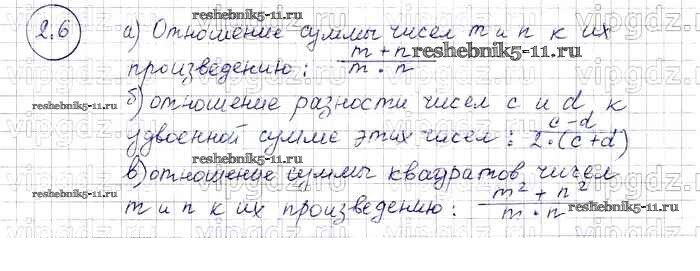 2.6
а) Отношение суммы чисел m и n к их
произведению: (m + n)/(m · n)
б) отношение разности чисел c и d к
удвоенной сумме этих чисел: (c - d)/(2 · (c + d))
в) отношение суммы квадратов чисел
m и n к их произведению: (m² + n²)/(m · n)
reshebnik5-11.ru
reshebnik5-11.ru
reshebnik5-11.ru
reshebnik5-11.ru
reshebnik5-11.ru
vipgdz.ru